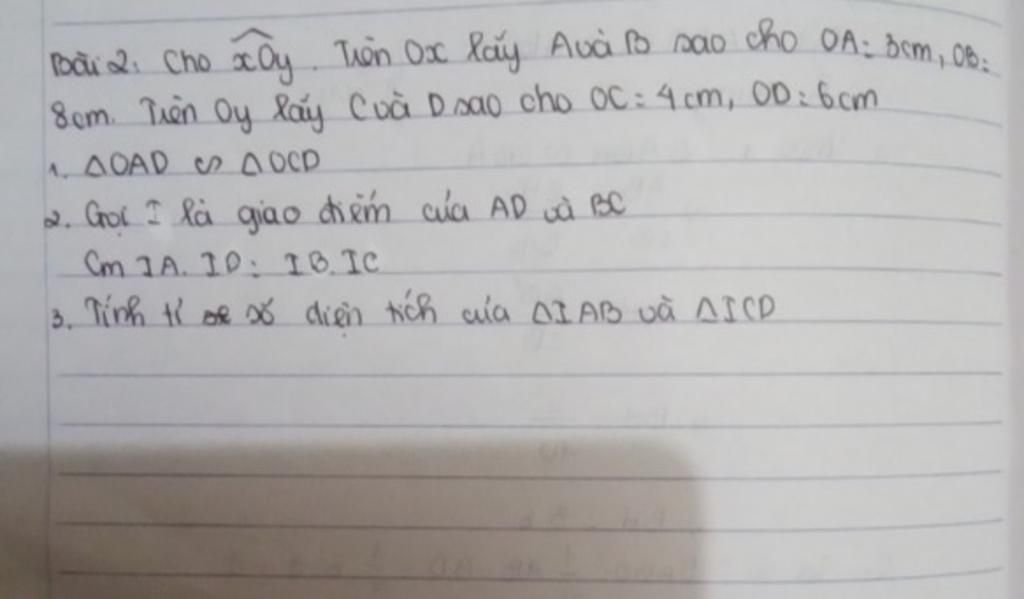 Bài 2. Cho xOy. Trên Ox lấy A và B sao cho OA = 3cm, OB =
8cm. Trên Oy lấy C và D sao cho OC = 4cm, OD = 6cm
1. ΔOAD ∽ ΔOCD
2. Gọi I là giao điểm của AD và BC
Cm IA. ID = IB. IC
3. Tính tỉ số diện tích của ΔIAB và ΔICD